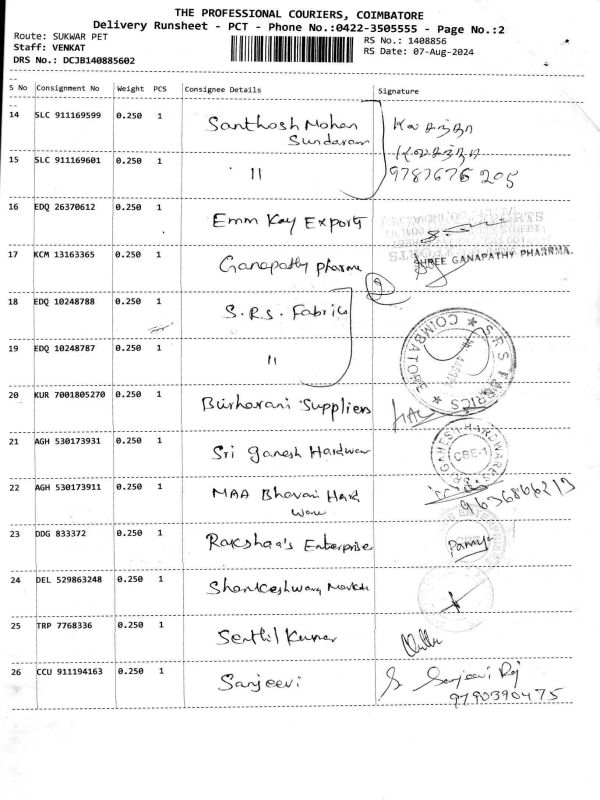 THE PROFESSIONAL COURIERS, COIMBATORE
Delivery Runsheet - PCT - Phone No.:0422-3505555 - Page No.:2
Route: SUKWAR PET
RS No.: 1408856
Staff: VENKAT
RS Date: 07-Aug-2024
DRS No.: DCJB140885602
S No Consignment No Weight PCS Consignee Details Signature
14 SLC 911169599 0.250 1 Santhosh Mohan
Sundaram
15 SLC 911169601 0.250 1 11
9787676 205
16 EDQ 26370612 0.250 1 Emm Kay Exports
17 KCM 13163365 0.250 1 Ganapathy pharma SHREE GANAPATHY PHARRMA.
2
18 EDQ 10248788 0.250 1 S.R.S. Fabrics
S.R.S FABRICS ★ COIMBATORE ★
19 EDQ 10248787 0.250 1 11
20 KUR 7001805270 0.250 1 Suppliers
21 AGH 530173931 0.250 1 Sri Ganesh Hardwar
SRI GANESH HARDWARES
CBE-1
22 AGH 530173911 0.250 1 MAA Bhavani Hard
ware
9636866213
23 DDG 833372 0.250 1 Rakshaa's Enterprise
24 DEL 529863248 0.250 1
25 TRP 7768336 0.250 1 Senthil Kumar
26 CCU 911194163 0.250 1 Sanjeevi S Sanjeevi Raj
9790390475